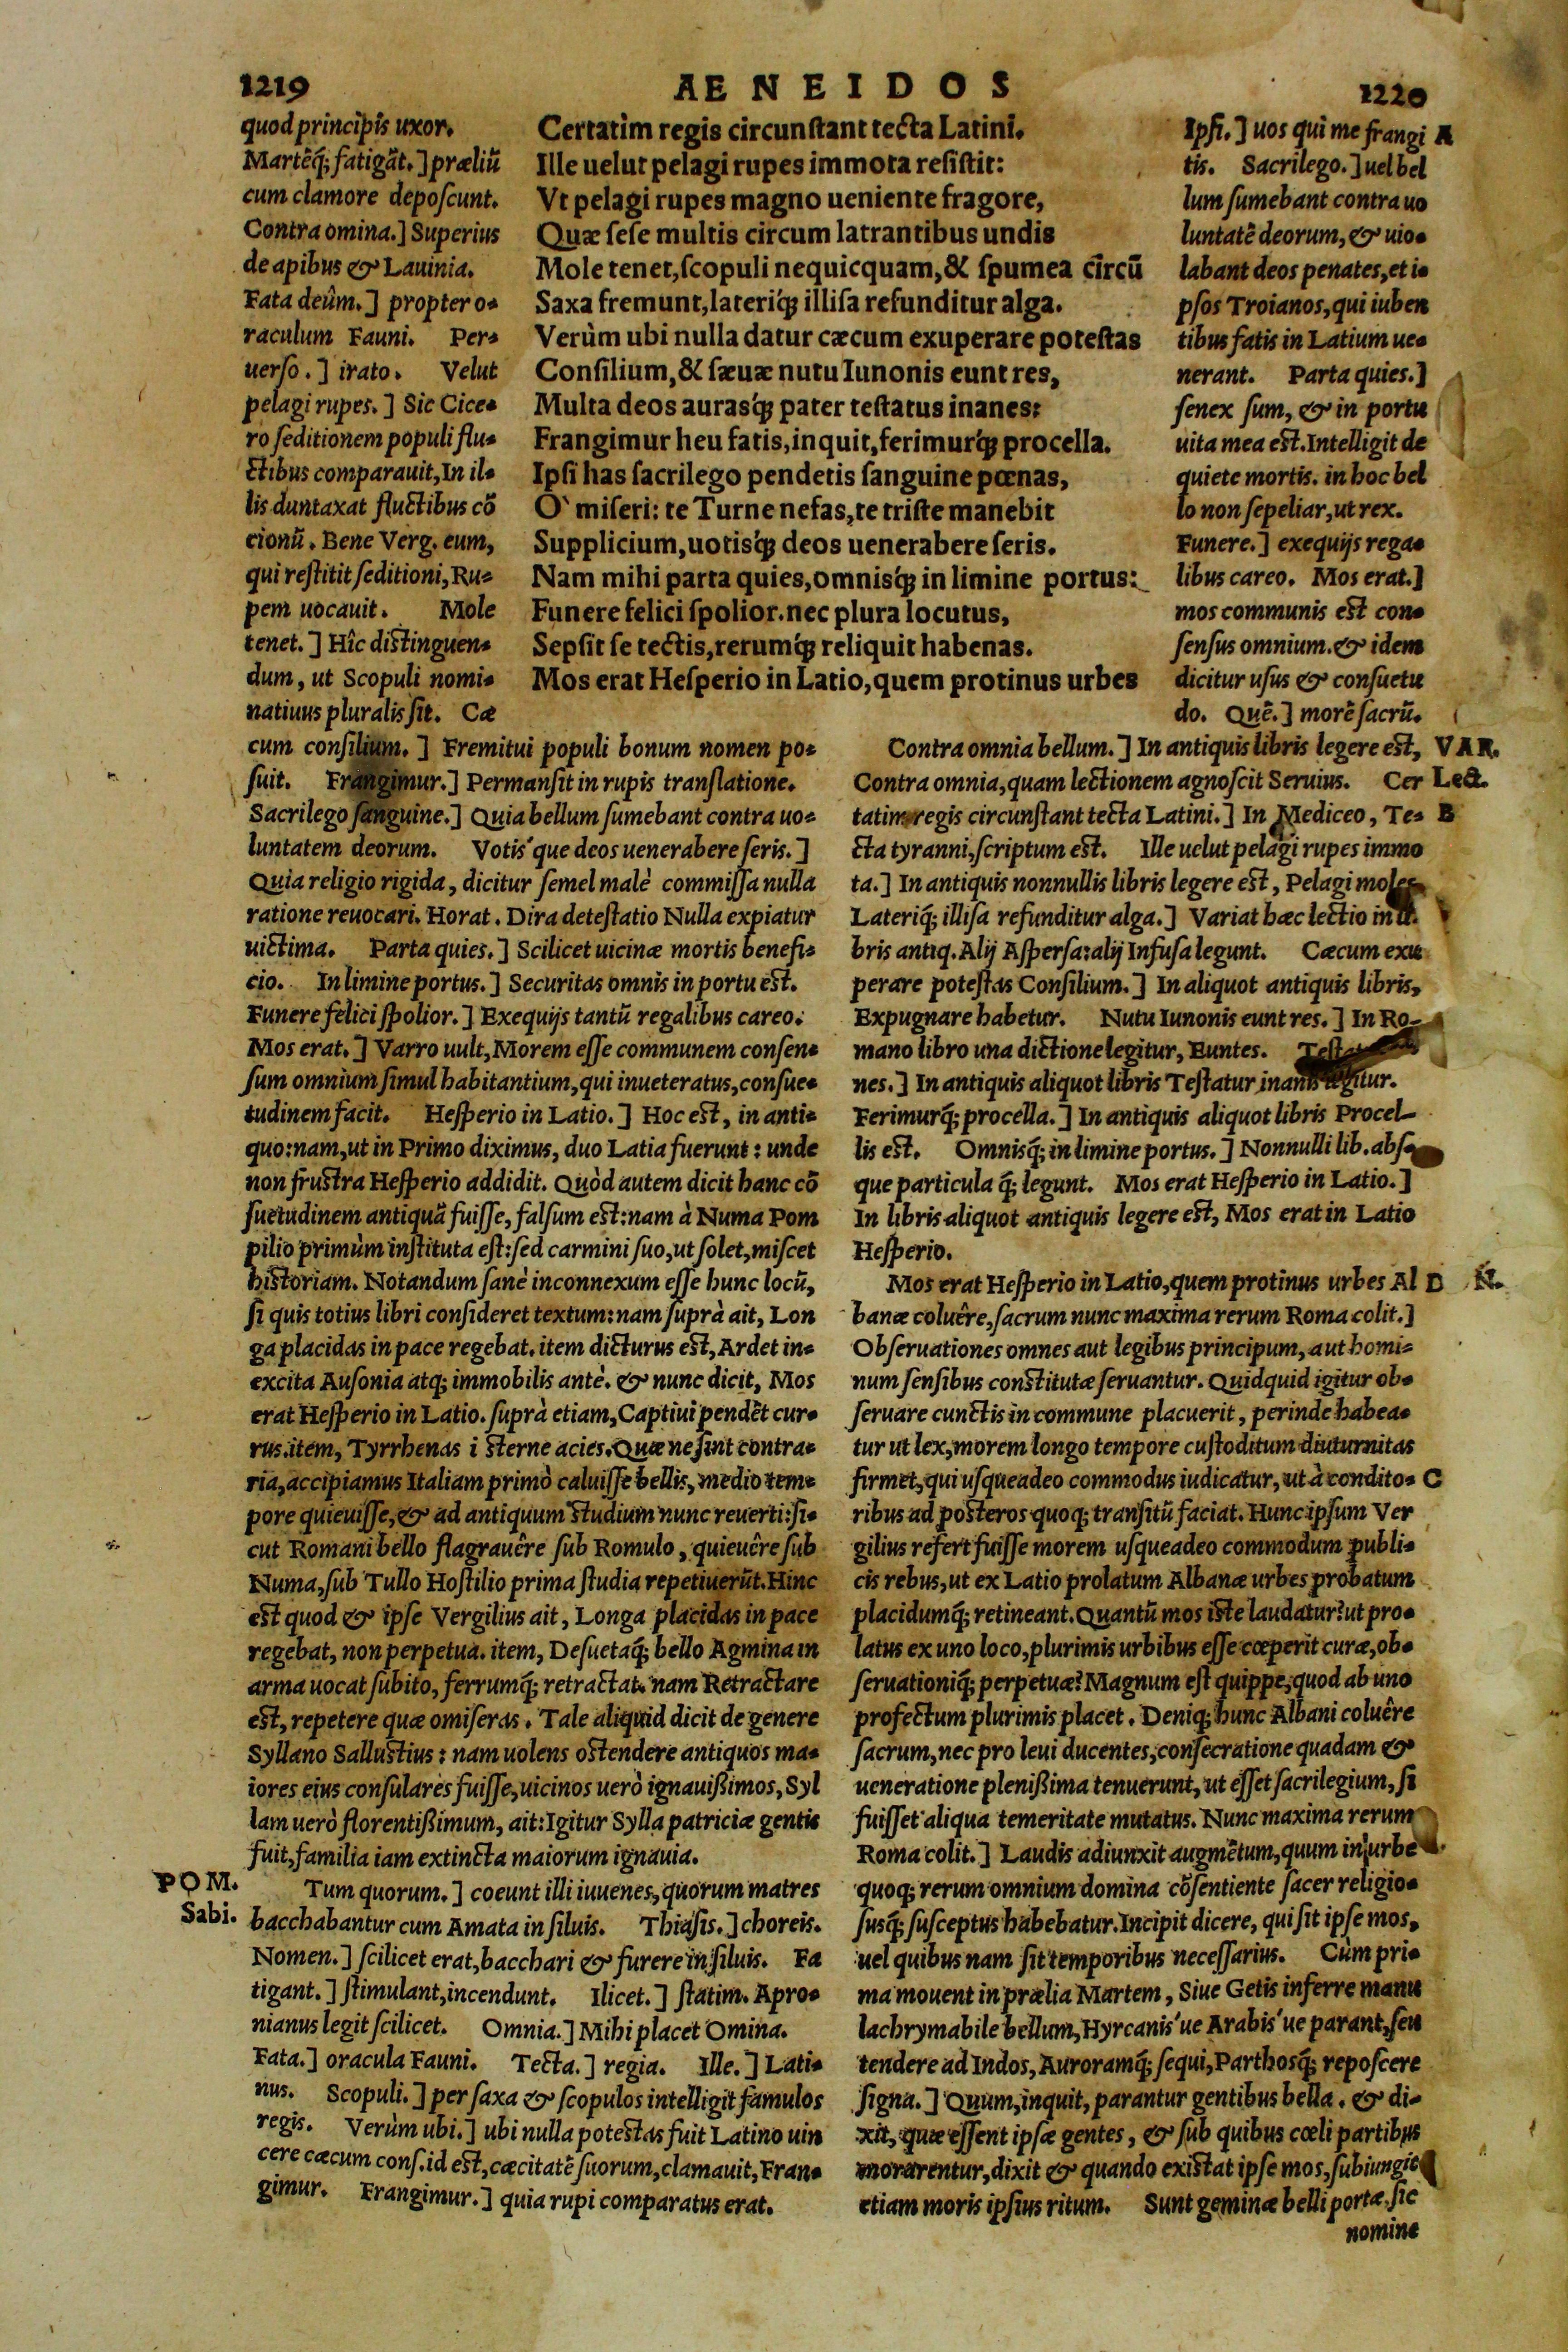 1219
AENEIDOS
1220
quod principis uxor.
Martēq́; fatigāt.] præliū
cum clamore deposcunt.
Contra omina.] Superius
de apibus & Lauinia.
Fata deûm.] propter o-
raculum Fauni. Per-
uerso.] irato. Velut
pelagi rupes.] Sic Cice-
ro seditionem populi flu-
ctibus comparauit, In il-
lis duntaxat fluctibus cō
cionū. Bene Verg. eum,
qui restitit seditioni, Ru-
pem uocauit. Mole
tenet.] Hîc distinguen-
dum, ut Scopuli nomi-
natiuus pluralis sit. Cæ
cum consilium.] Fremitui populi bonum nomen po-
suit. Frangimur.] Permansit in rupis translatione.
Sacrilego sanguine.] Quia bellum sumebant contra uo-
luntatem deorum. Votis´que deos uenerabere seris.]
Quia religio rigida, dicitur semel malè commissa nulla
ratione reuocari. Horat. Dira detestatio Nulla expiatur
uictima. Parta quies.] Scilicet uicinæ mortis benefi-
cio. In limine portus.] Securitas omnis in portu est.
Funere felici spolior.] Exequijs tantū regalibus careo.
Mos erat.] Varro uult, Morem esse communem consen-
sum omnium simul habitantium, qui inueteratus, consue-
tudinem facit. Hesperio in Latio.] Hoc est, in anti-
quo: nam, ut in Primo diximus, duo Latia fuerunt: unde
non frustra Hesperio addidit. Quòd autem dicit hanc cō
suetudinem antiquā fuisse, falsum est: nam à Numa Pom
pilio primùm instituta est: sed carmini suo, ut solet, miscet
historiam. Notandum sanè inconnexum esse hunc locū,
si quis totius libri consideret textum: nam suprà ait, Lon
ga placidas in pace regebat. item dicturus est, Ardet in-
excita Ausonia atq; immobilis antè. & nunc dicit, Mos
erat Hesperio in Latio. suprà etiam, Captiui pendēt cur-
rus. item, Tyrrhenas i sterne acies. Quæ ne sint contra-
ria, accipiamus Italiam primò caluisse bellis, medio tem-
pore quieuisse, & ad antiquum studium nunc reuerti: si-
cut Romani bello flagrauêre sub Romulo, quieuêre sub
Numa, sub Tullo Hostilio prima studia repetiuerūt. Hinc
est quod & ipse Vergilius ait, Longa placidas in pace
regebat, non perpetua. item, Desuetaq́; bello Agmina in
arma uocat subito, ferrumq́; retractat. nam Retractare
est, repetere quæ omiseras. Tale aliquid dicit de genere
Syllano Sallustius: nam uolens ostendere antiquos ma-
iores eius consulares fuisse, uicinos uerò ignauißimos, Syl
lam uerò florentißimum, ait: Igitur Sylla patriciæ gentis
fuit, familia iam extincta maiorum ignauia.
POM.
Sabi.
Tum quorum.] coeunt illi iuuenes, quorum matres
bacchabantur cum Amata in siluis. Thiasis.] choreis.
Nomen.] scilicet erat, bacchari & furere in siluis. Fa
tigant.] stimulant, incendunt. Ilicet.] statim. Apro-
nianus legit scilicet. Omnia.] Mihi placet Omina.
Fata.] oracula Fauni. Tecta.] regia. Ille.] Lati-
nus. Scopuli.] per saxa & scopulos intelligit famulos
regis. Verùm ubi.] ubi nulla potestas fuit Latino uin
cere cæcum cons. id est, cæcitatē suorum, clamauit, Fran-
gimur. Frangimur.] quia rupi comparatus erat.
Certatìm regis circunstant tecta Latini.
Ille uelut pelagi rupes immota resistit:
Vt pelagi rupes magno ueniente fragore,
Quæ sese multis circum latrantibus undis
Mole tenet, scopuli nequicquam, & spumea circū
Saxa fremunt, lateriq́; illisa refunditur alga.
Verùm ubi nulla datur cæcum exuperare potestas
Consilium, & sæuæ nutu Iunonis eunt res,
Multa deos aurasq́; pater testatus inanes:
Frangimur heu fatis, inquit, ferimurq́; procella.
Ipsi has sacrilego pendetis sanguine pœnas,
O` miseri: te Turne nefas, te triste manebit
Supplicium, uotisq́; deos uenerabere seris.
Nam mihi parta quies, omnisq́; in limine portus:
Funere felici spolior. nec plura locutus,
Sepsit se tectis, rerumq́; reliquit habenas.
Mos erat Hesperio in Latio, quem protinus urbes
Ipsi.] uos qui me frangi A
tis. Sacrilego.] uel bel
lum sumebant contra uo
luntatē deorum, & uio-
labant deos penates, et i-
psos Troianos, qui iuben
tibus fatis in Latium ue-
nerant. Parta quies.]
senex sum, & in portu
uita mea est. Intelligit de
quiete mortis. in hoc bel
lo non sepeliar, ut rex.
Funere.] exequijs rega-
libus careo. Mos erat.]
mos communis est con-
sensus omnium. & idem
dicitur usus & consuetu
do. Quē.] morē sacrū.
Contra omnia bellum.] In antiquis libris legere est, VAR.
Contra omnia, quam lectionem agnoscit Seruius. Cer Lect.
tatim regis circunstant tecta Latini.] In Mediceo, Te- B
cta tyranni, scriptum est. Ille uelut pelagi rupes immo
ta.] In antiquis nonnullis libris legere est, Pelagi moles
Lateriq́; illisa refunditur alga.] Variat hæc lectio in
bris antiq. Alij Aspersa: alij Infusa legunt. Cæcum exu
perare potestas Consilium.] In aliquot antiquis libris,
Expugnare habetur. Nutu Iunonis eunt res.] In Ro-
mano libro una dictione legitur, Euntes.
nes.] In antiquis aliquot libris Testatur inanis legitur.
Ferimurq́; procella.] In antiquis aliquot libris Procel-
lis est. Omnisq́; in limine portus.] Nonnulli lib. abs
que particula q́; legunt. Mos erat Hesperio in Latio.]
In libris aliquot antiquis legere est, Mos erat in Latio
Hesperio.
Mos erat Hesperio in Latio, quem protinus urbes Al D N.
banæ coluêre, sacrum nunc maxima rerum Roma colit.]
Obseruationes omnes aut legibus principum, aut homi-
num sensibus constitutæ seruantur. Quidquid igitur ob-
seruare cunctis in commune placuerit, perinde habea-
tur ut lex, morem longo tempore custoditum diuturnitas
firmet, qui usqueadeo commodus iudicatur, ut à condito- C
ribus ad posteros quoq; transitū faciat. Hunc ipsum Ver
gilius refert fuisse morem usqueadeo commodum publi-
cis rebus, ut ex Latio prolatum Albanæ urbes probatum
placidumq́; retineant. Quantū mos iste laudatur? ut pro-
latus ex uno loco, plurimis urbibus esse cœperit curæ, ob-
seruationiq́; perpetuæ? Magnum est quippe, quod ab uno
profectum plurimis placet. Deniq; hunc Albani coluêre
sacrum, nec pro leui ducentes, consecratione quadam &
ueneratione plenißima tenuerunt, ut esset sacrilegium, si
fuisset aliqua temeritate mutatus. Nunc maxima rerum
Roma colit.] Laudis adiunxit augmētum, quum in urbe
quoq; rerum omnium domina cōsentiente sacer religio-
susq́; susceptus habebatur. Incipit dicere, qui sit ipse mos,
uel quibus nam sit temporibus necessarius. Cùm pri-
ma mouent in prælia Martem, Siue Getis inferre manu
lachrymabile bellum, Hyrcanis´ue Arabis´ue parant, seu
tendere ad Indos, Auroramq́; sequi, Parthosq́; reposcere
signa.] Quum, inquit, parantur gentibus bella. & di-
xit, quæ essent ipsæ gentes, & sub quibus cœli partibus
morarentur, dixit & quando existat ipse mos, subiungit
etiam moris ipsius ritum. Sunt geminæ belli portæ. sic
nomine